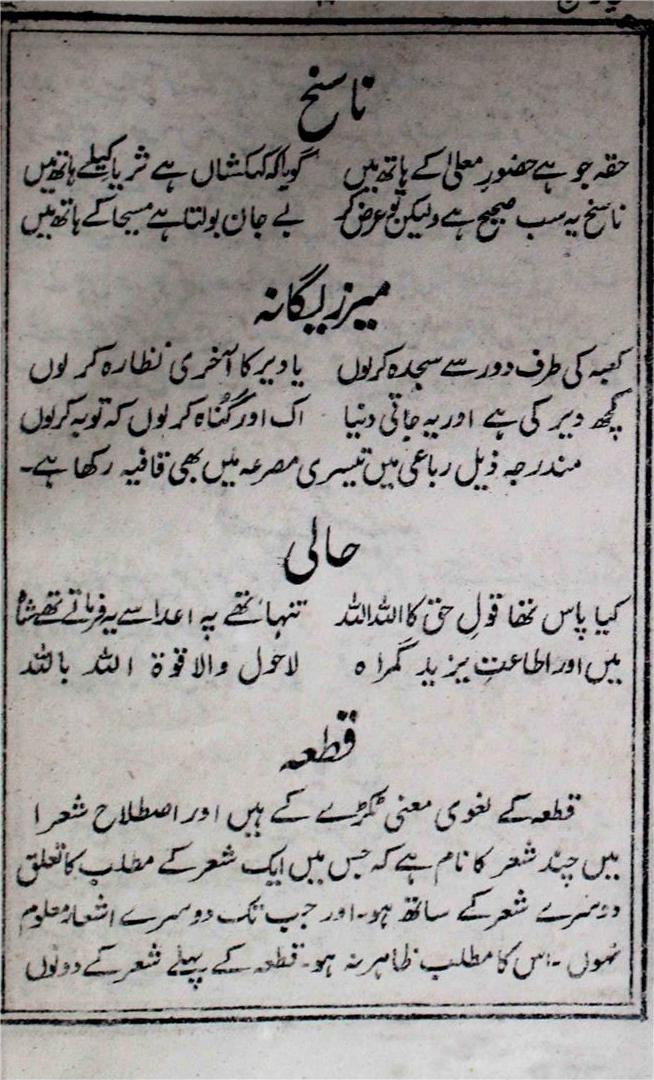 ناسخ
حقہ جو ہے حضورِ معلیٰ کے ہاتھ میں گویا کہ کہکشاں ہے ثریا کیلے ہاتھ میں
ناسخ یہ سب صحیح ہے ولیکن تو عرض کر بے جان بولتا ہے مسیحا کے ہاتھ میں
میرزا یگانہ
کعبہ کی طرف دور سے سجدہ کر لوں یا دیر کا آخری نظارہ کر لوں
کچھ دیر کی ہے اور یہ جاتی دنیا اک اور گناہ کر لوں کہ توبہ کر لوں
مندرجہ ذیل رباعی میں تیسری مصرعہ میں بھی قافیہ رکھا ہے۔
حالی
کیا پاس تھا قولِ حق کا اللہ اللہ تنہا تھے پہ اعدا سے یہ فرماتے تھے شاہ
میں اور اطاعتِ یزید گمراہ لاحول والا قوۃ اللہ باللہ
قطعہ
قطعہ کے لغوی معنی ٹکڑے کے ہیں اور اصطلاح شعرا
میں چند شعر کا نام ہے کہ جس میں ایک شعر کے مطلب کا تعلق
دوسرے شعر کے ساتھ ہو۔ اور جب تک دوسرے اشعار معلوم
نہوں۔ اس کا مطلب ظاہر نہ ہو۔ قطعہ کے پہلے شعر کے دونوں